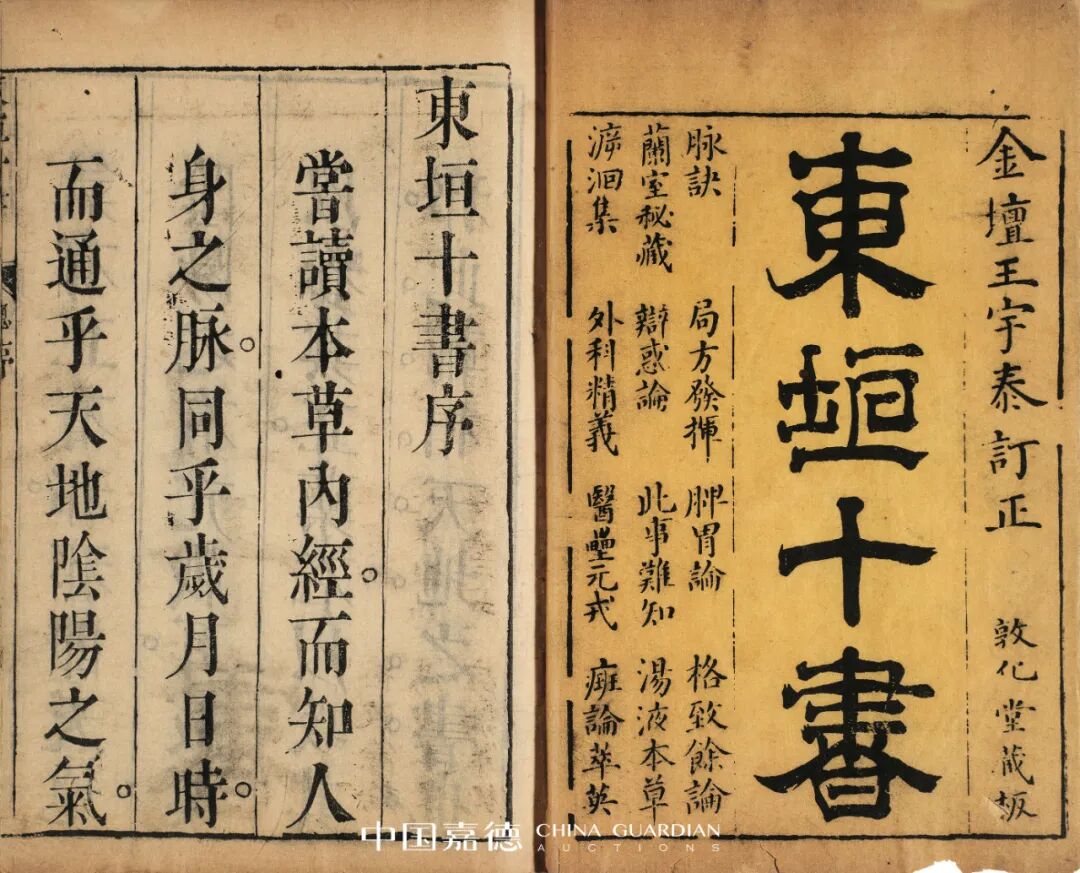 金壇王宇泰訂正 敦化堂藏板
東垣十書
脉訣 局方發揮 脾胃論 格致餘論
蘭室秘藏 辯惑論 此事難知 湯液本草
溯洄集 外科精義 醫壘元戎 癍論萃英
東垣十書序
甞讀本草內經。而知人
身之脉。同乎歲月日時。
而通乎天地陰陽之氣。
中国嘉德 CHINA GUARDIAN
AUCTIONS